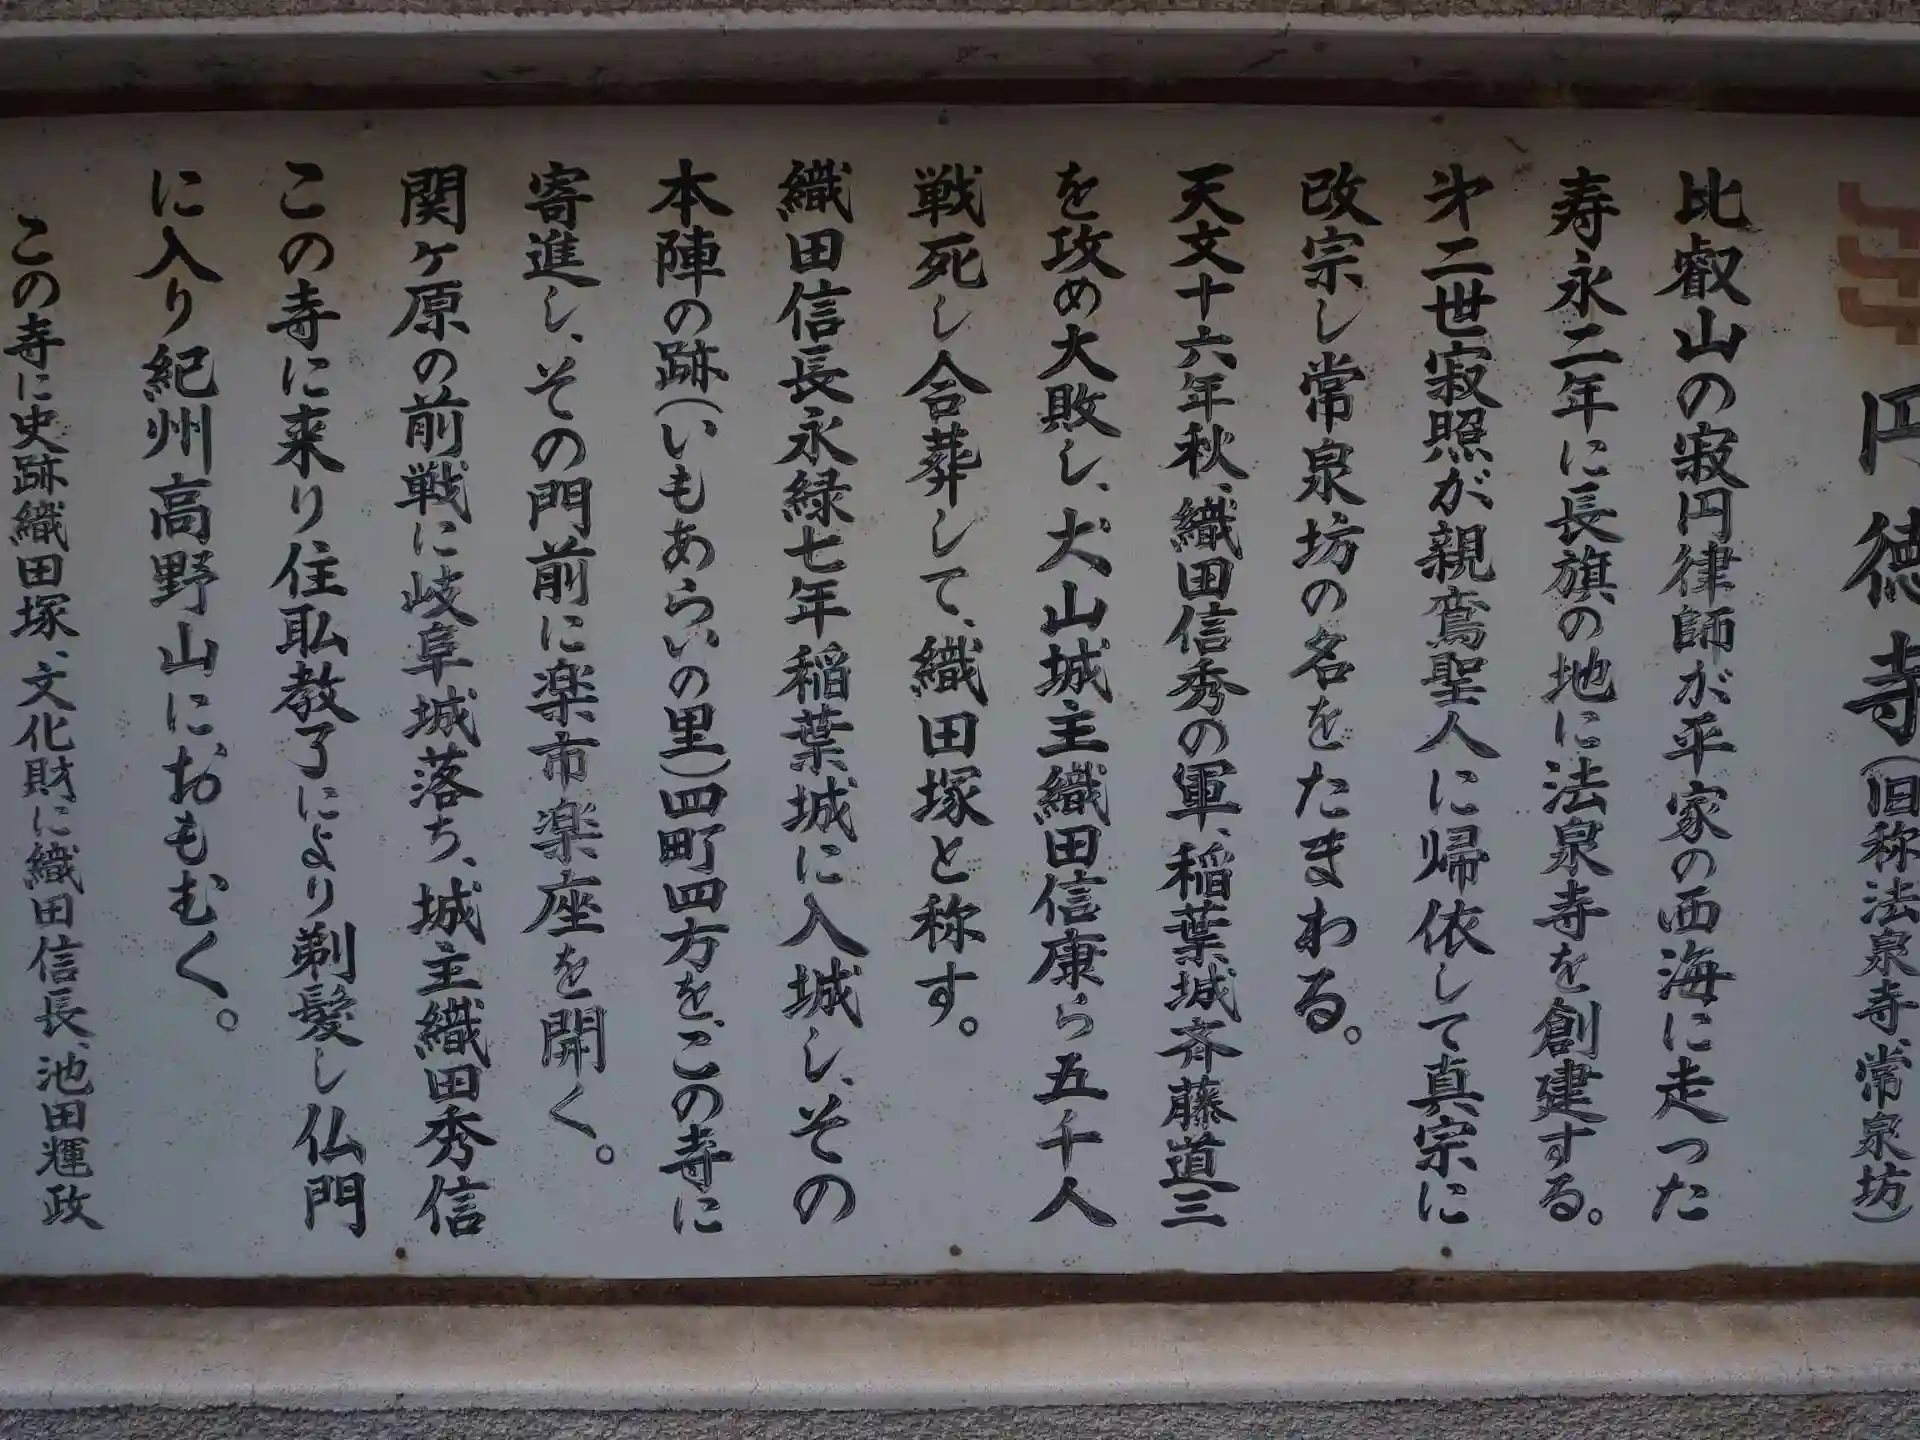 円徳寺(旧称法泉寺、常泉坊)
比叡山の寂円律師が平家の西海に走った
寿永二年に長旗の地に法泉寺を創建する。
㐧二世寂照が親鸞聖人に帰依して真宗に
改宗し常泉坊の名をたまわる。
天文十六年秋、織田信秀の軍、稲葉城斉藤道三
を攻め大敗し、犬山城主織田信康ら五千人
戦死し合葬して、織田塚と称す。
織田信長永緑七年稲葉城に入城し、その
本陣の跡(いもあらいの里)四町四方を、この寺に
寄進し、その門前に楽市楽座を開く。
関ヶ原の前戦に岐阜城落ち、城主織田秀信
この寺に来り住耺教了により剃髪し仏門
に入り紀州高野山におもむく。
この寺に史跡織田塚、文化財に織田信長、池田輝政